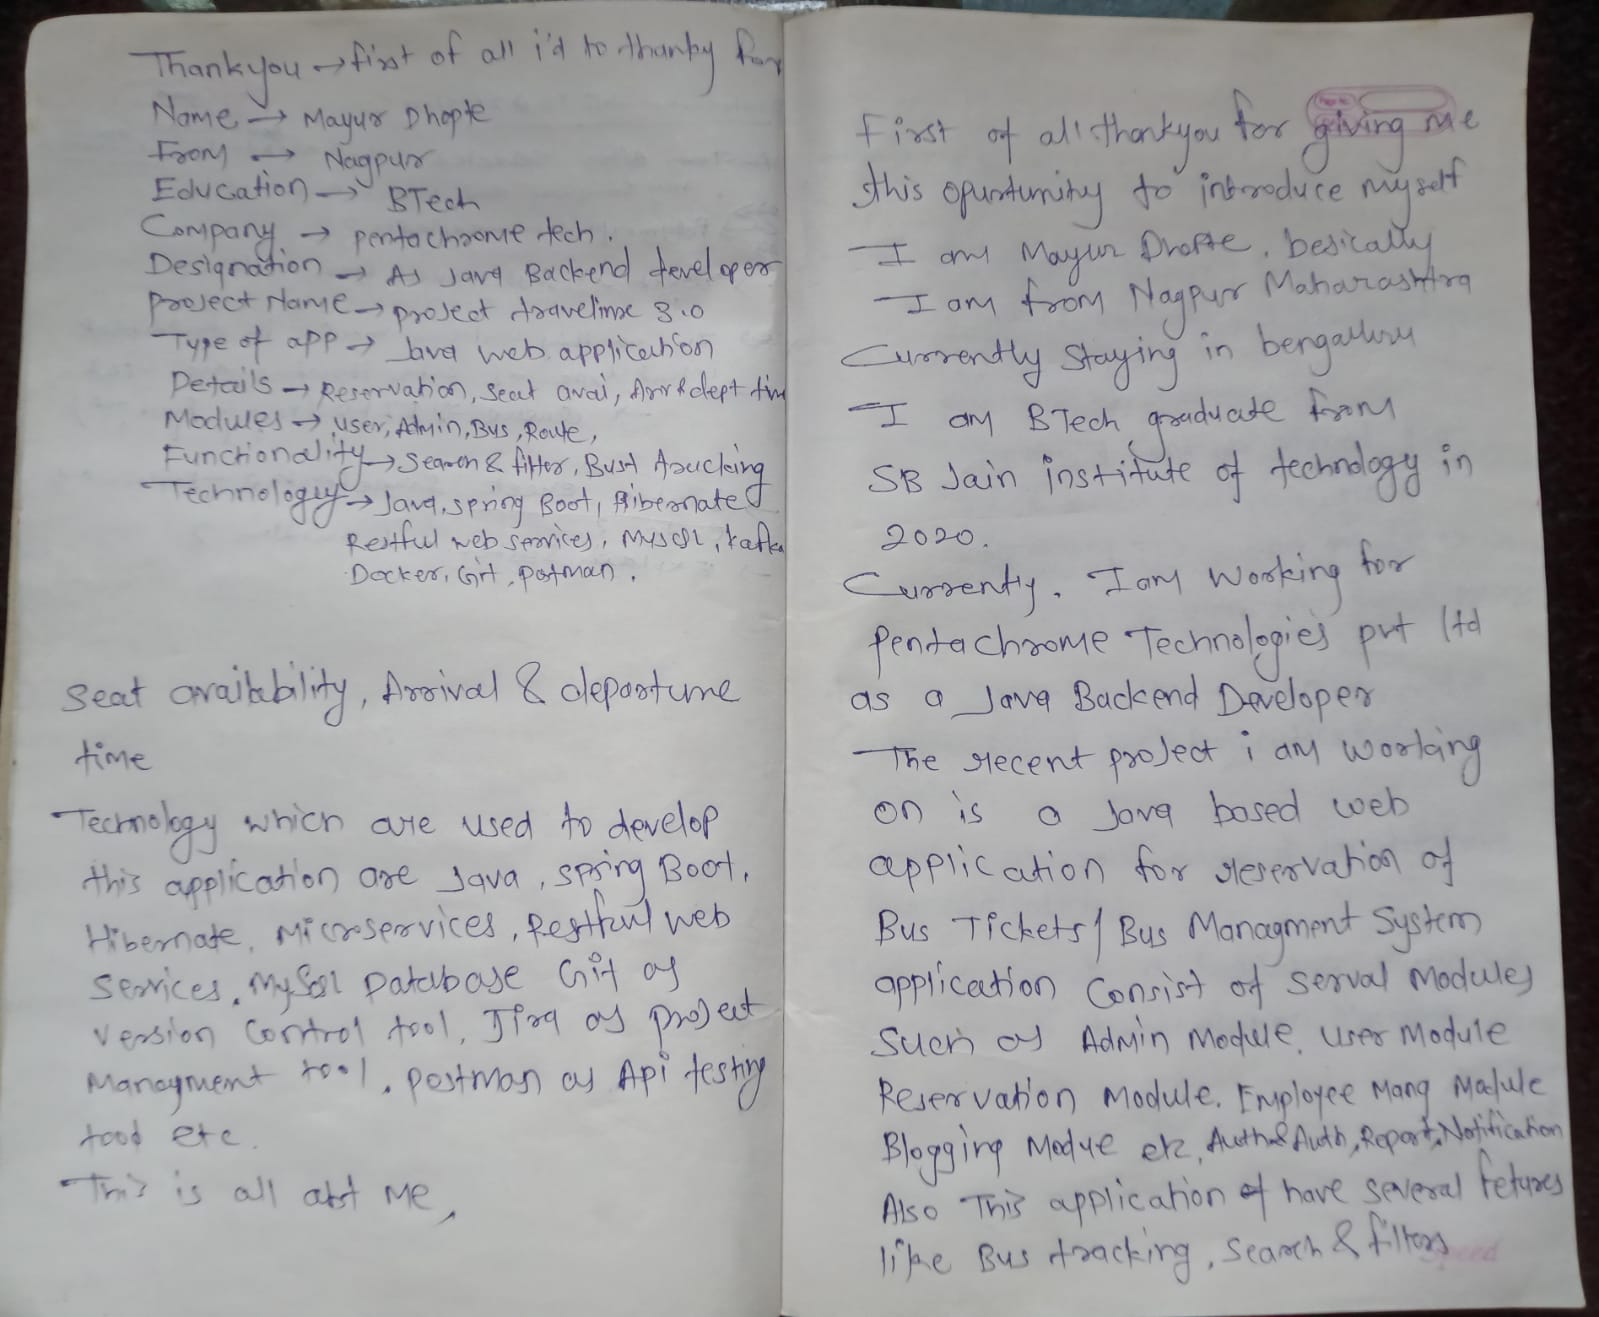 Thankyou → first of all i'd to thanky for
Name → Mayur Dhopte
From → Nagpur
Education → BTech
Company → pentachrome tech.
Designation → As Java Backend developer
Project Name → project travelime 3.0
Type of app → Java web application
Details → Reservation, seat avai, Arr & dept tim
Modules → user, Admin, Bus, Route,
Functionality → Search & filter, Bust Aracking
Technology → Java, spring Boot, Hibernate
Restful web services, Mysql, kafka
Docker, Git, postman.
Seat availability, Arrival & departure
time
Technology which are used to develop
this application are Java, spring Boot,
Hibernate, Microservices, Restful web
Services, MySql Database Git as
version control tool, Jira as project
Managment tool, postman as Api testing
tood etc.
This is all abt me,
First of all thankyou for giving me
this opurtumity to introduce myself
I am Mayur Dhopte, besically
I am from Nagpur Maharashtra
Currently staying in bengalluru
I am BTech graduate from
SB Jain institute of technology in
2020.
Currently, I am working for
Pentachrome Technologies pvt ltd
as a Java Backend Developer
The recent project i am working
on is a Java based web
application for reservation of
Bus Tickets / Bus Managment System
application consist of serval modules
Such as Admin Module, user Module
Reservation Module, Employee Mang Module
Blogging Modue etc, Auth & Auth, Report, Notification
Also This application of have several fetures
like Bus tracking, Search & filters